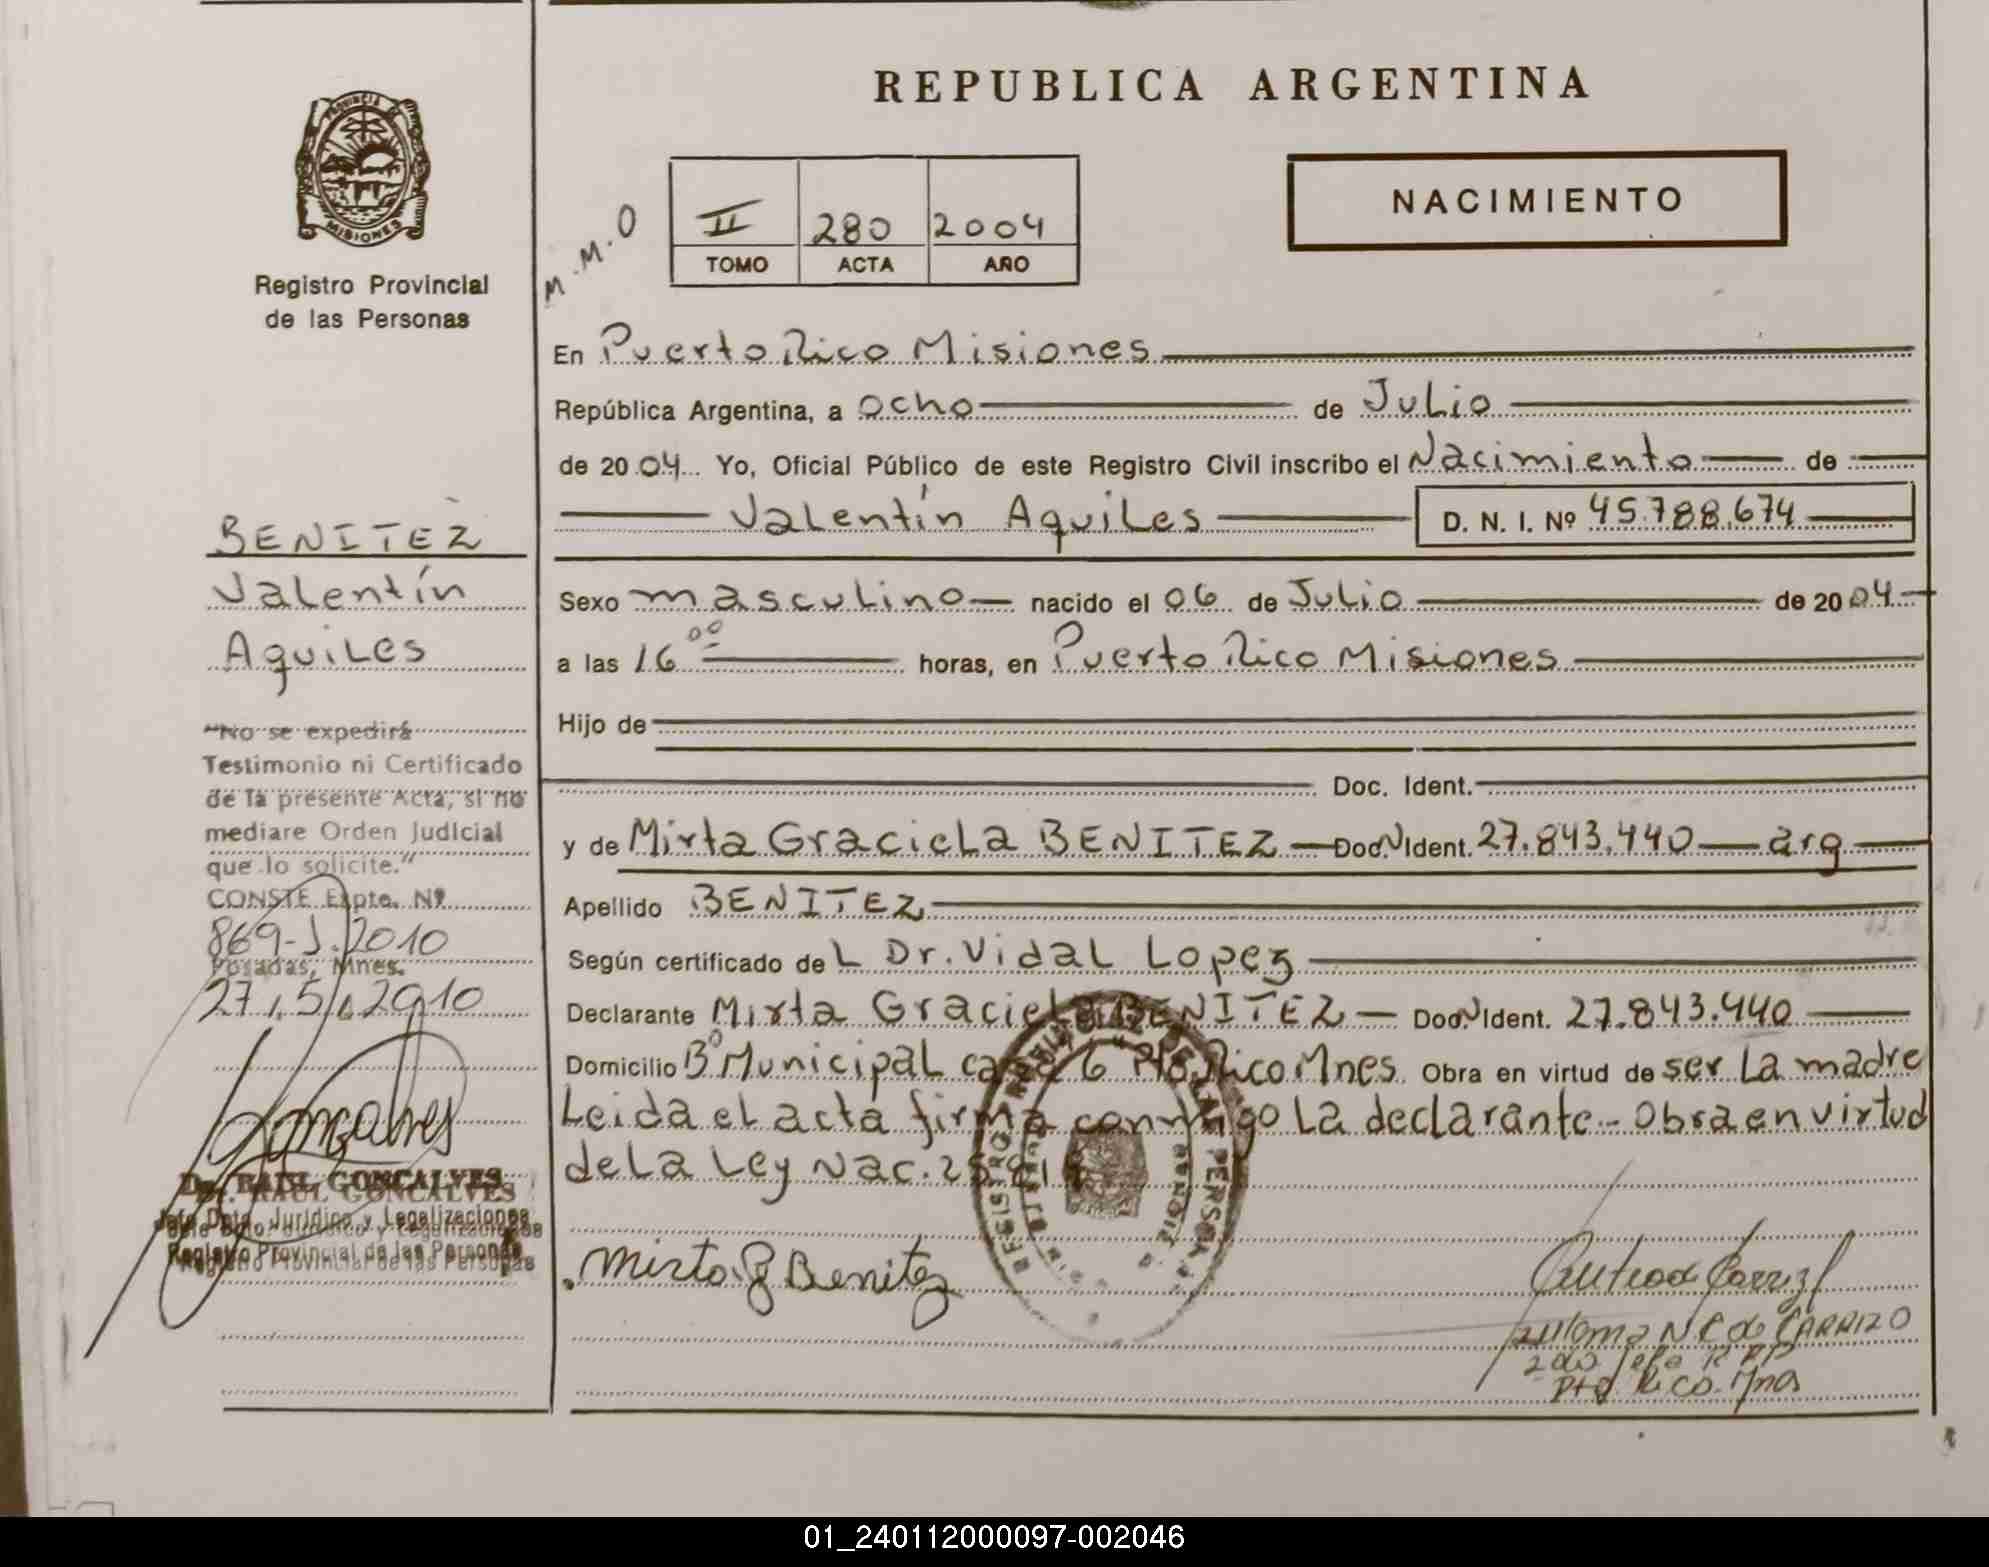 REPUBLICA ARGENTINA
PROVINCIA DE
MISIONES
Registro Provincial
de las Personas
M.M.O
II 280 2004
TOMO ACTA AÑO
NACIMIENTO
En Puerto Rico Misiones
República Argentina, a ocho de Julio
de 2004 Yo, Oficial Público de este Registro Civil inscribo el Nacimiento de
Valentín Aquiles D. N. I. Nº 45.788.674
Sexo masculino nacido el 06 de Julio de 2004
a las 16 00 horas, en Puerto Rico Misiones
Hijo de
Doc. Ident.
y de Mirta Graciela BENITEZ Doc. N Ident. 27.843.440 arg
Apellido BENITEZ
Según certificado de L Dr. Vidal Lopez
Declarante Mirta Graciela BENITEZ Doc. N Ident. 27.843.440
Domicilio Bº Municipal casa 6 Pto Rico Mnes. Obra en virtud de ser La madre
Leida el acta firma conmigo La declarante.- Obra en virtud
de La Ley Nac.
Mirta G Benitez
N C de CARRIZO
2do Jefe R.P.P
Pto Rico. Mnes
BENITEZ
Valentín
Aquiles
"No se expedirá
Testimonio ni Certificado
de la presente Acta, si no
mediare Orden Judicial
que lo solicite."
CONSTE Expte. Nº
869-J.2010
Posadas, Mnes.
27, 5, 2010
Goncalves
Dr. RAUL GONCALVES
Jefe Dpto. Jurídico y Legalizaciones
Registro Provincial de las Personas
01_240112000097-002046